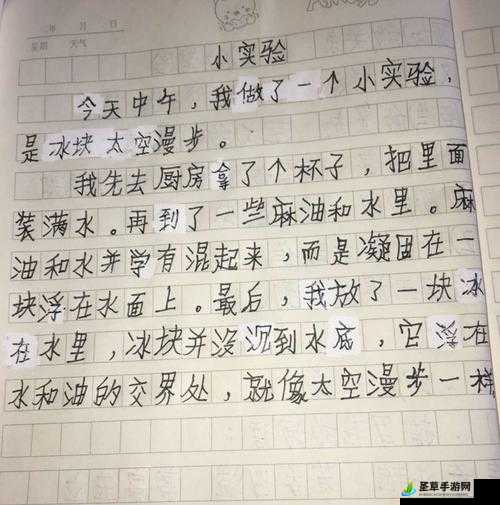 年 月 日
星期 天气
小实验
今天中午，我做了一个小实验，
是冰块太空漫步。
我先去厨房拿了个杯子，把里面
装满水。再到了一些麻油和水里。麻
油和水并学有混起来，而是凝固在一
块浮在水面上。最后，我放了一块冰
在水里，冰块并没沉到水底，它浮在
水和油的交界处，就像太空漫步一样
圣草手游网